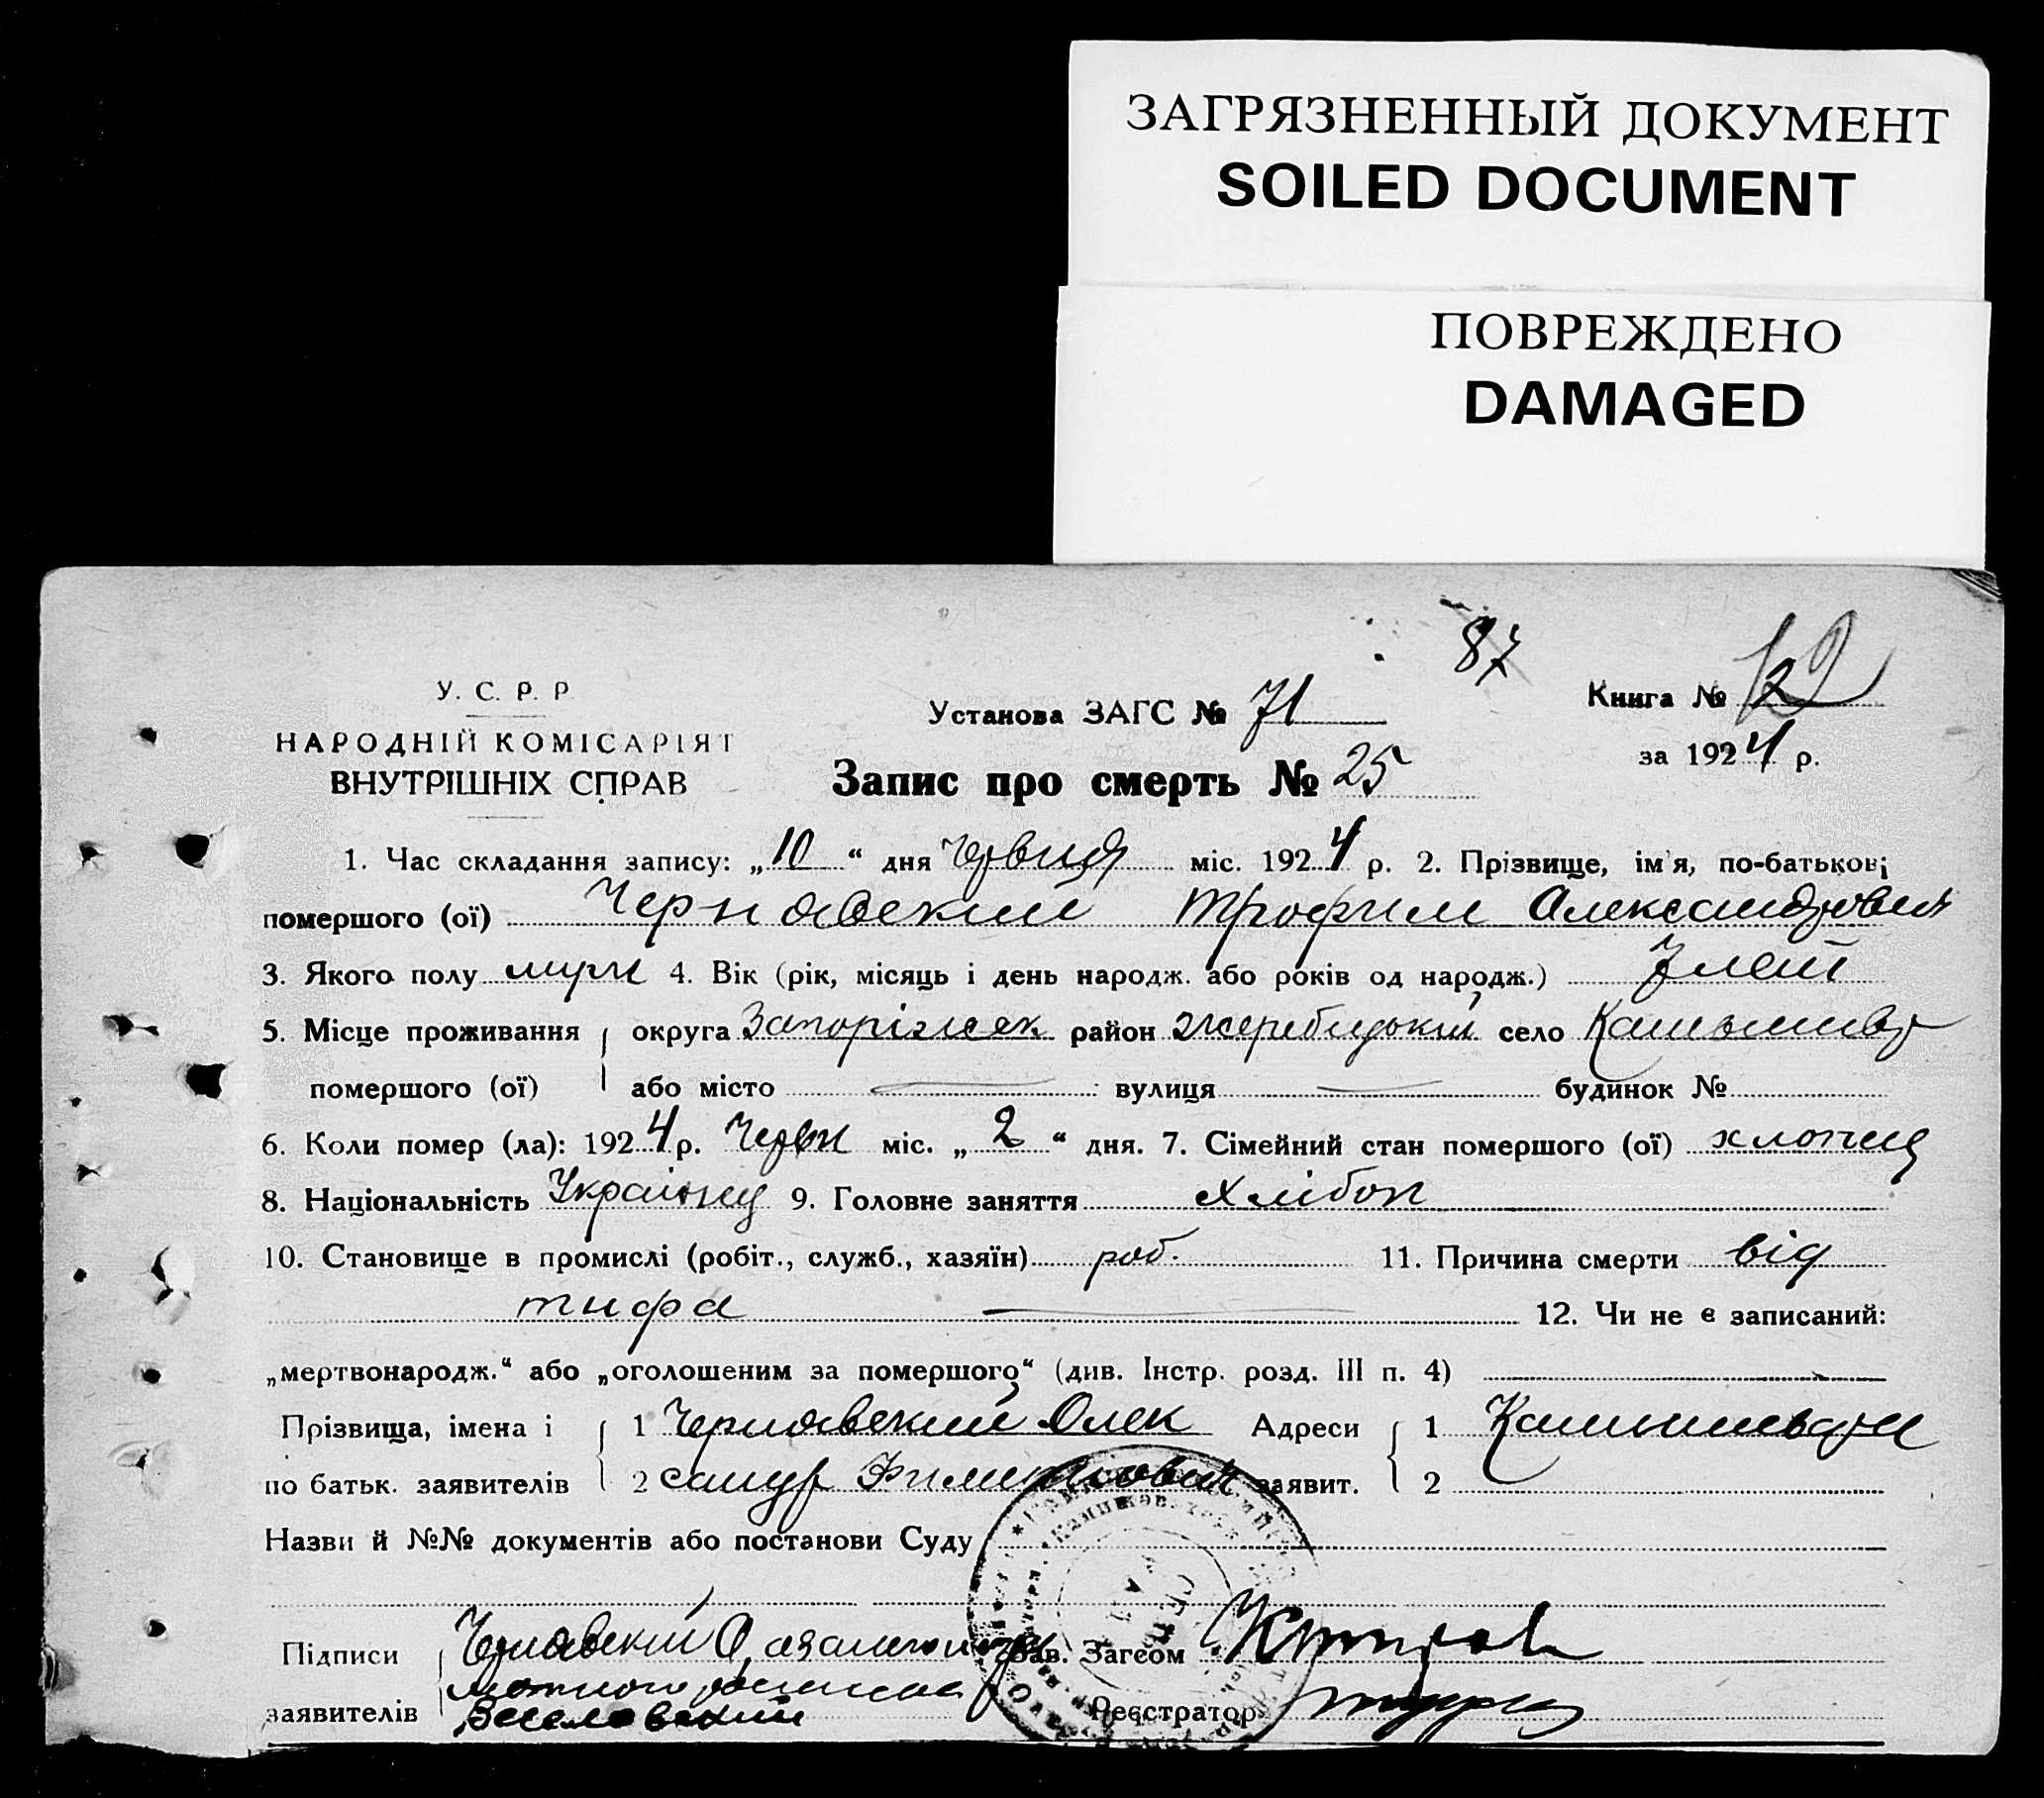 ЗАГРЯЗНЕННЫЙ ДОКУМЕНТ
SOILED DOCUMENT
ПОВРЕЖДЕНО
DAMAGED
87
У. С. Р. Р.
НАРОДНІЙ КОМІСАРІЯТ
ВНУТРІШНІХ СПРАВ
Установа ЗАГС № 71
Книга № 12
за 1924 р.
Запис про смерть № 25
1. Час складання запису: „10“ дня Червця міс. 1924 р. 2. Прізвище, ім'я, по-батькові
помершого (ої) Чернявский Трофим Александрович
3. Якого полу муж 4. Вік (рік, місяць і день народж. або років од народж.) 7 лет
5. Місце проживання округа Запоріжськ район Жеребецький село Камышевр
помершого (ої) або місто вулиця будинок №
6. Коли помер (ла): 1924 р. Червн міс. „2“ дня. 7. Сімейний стан помершого (ої) хлопец
8. Національність Українец 9. Головне заняття Хлібоп
10. Становище в промислі (робіт., служб., хазяїн) роб. 11. Причина смерти від
тифа 12. Чи не є записаний:
„мертвонародж.“ або „оголошеним за помершого“ (див. Інстр. розд. III п. 4)
Прізвища, імена і 1 Чернявский Олек Адреси 1
по батьк. заявителів 2 сандр заявит. 2
Назви й №№ документів або постанови Суду
Підписи Чернявский О, Зав. Загсом
заявителів Веселовский Реєстратор